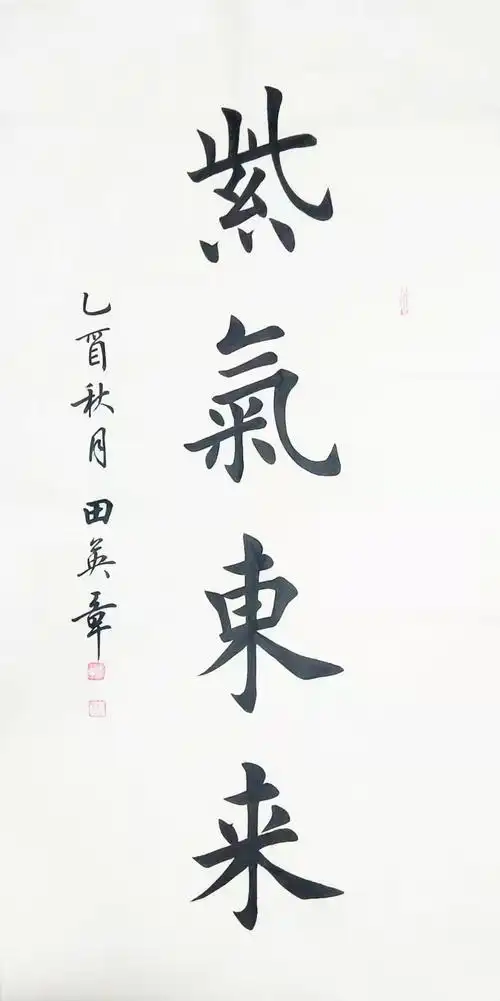 紫氣東来
乙酉秋月 田英章